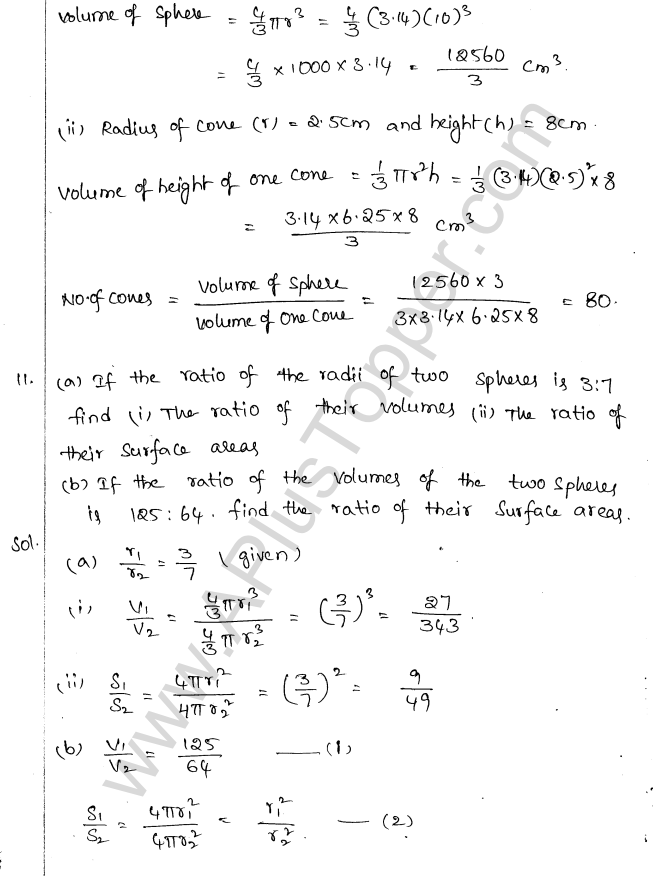 Volume of sphere = 4/3 πr³ = 4/3 (3.14)(10)³
= 4/3 × 1000 × 3.14 = 12560/3 cm³.
(ii) Radius of cone (r) = 2.5cm and height(h) = 8cm.
Volume of height of one cone = 1/3 πr²h = 1/3 (3.14)(2.5)² × 8
= 3.14 × 6.25 × 8/3 cm³
No. of cones = Volume of sphere/Volume of one cone = 12560 × 3/3×3.14× 6.25×8 = 80.
11. (a) If the ratio of the radii of two spheres is 3:7
find (i) The ratio of their volumes (ii) The ratio of
their surface areas
(b) If the ratio of the volumes of the two spheres
is 125:64. find the ratio of their surface areas.
Sol.
(a) r₁/r₂ = 3/7 (given)
(i) V₁/V₂ = 4/3 πr₁³/4/3 π r₂³ = (3/7)³ = 27/343.
(ii) S₁/S₂ = 4πr₁²/4πr₂² = (3/7)² = 9/49
(b) V₁/V₂ = 125/64 —(1)
S₁/S₂ = 4πr₁²/4πr₂² = r₁²/r₂². — (2)
www.APlusTopper.com